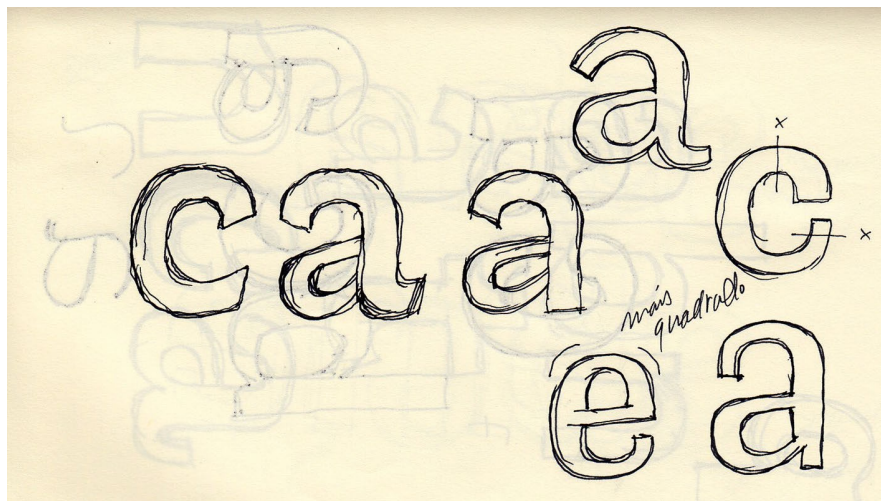 a
x
c
x
c a a
mais
quadrado
e a